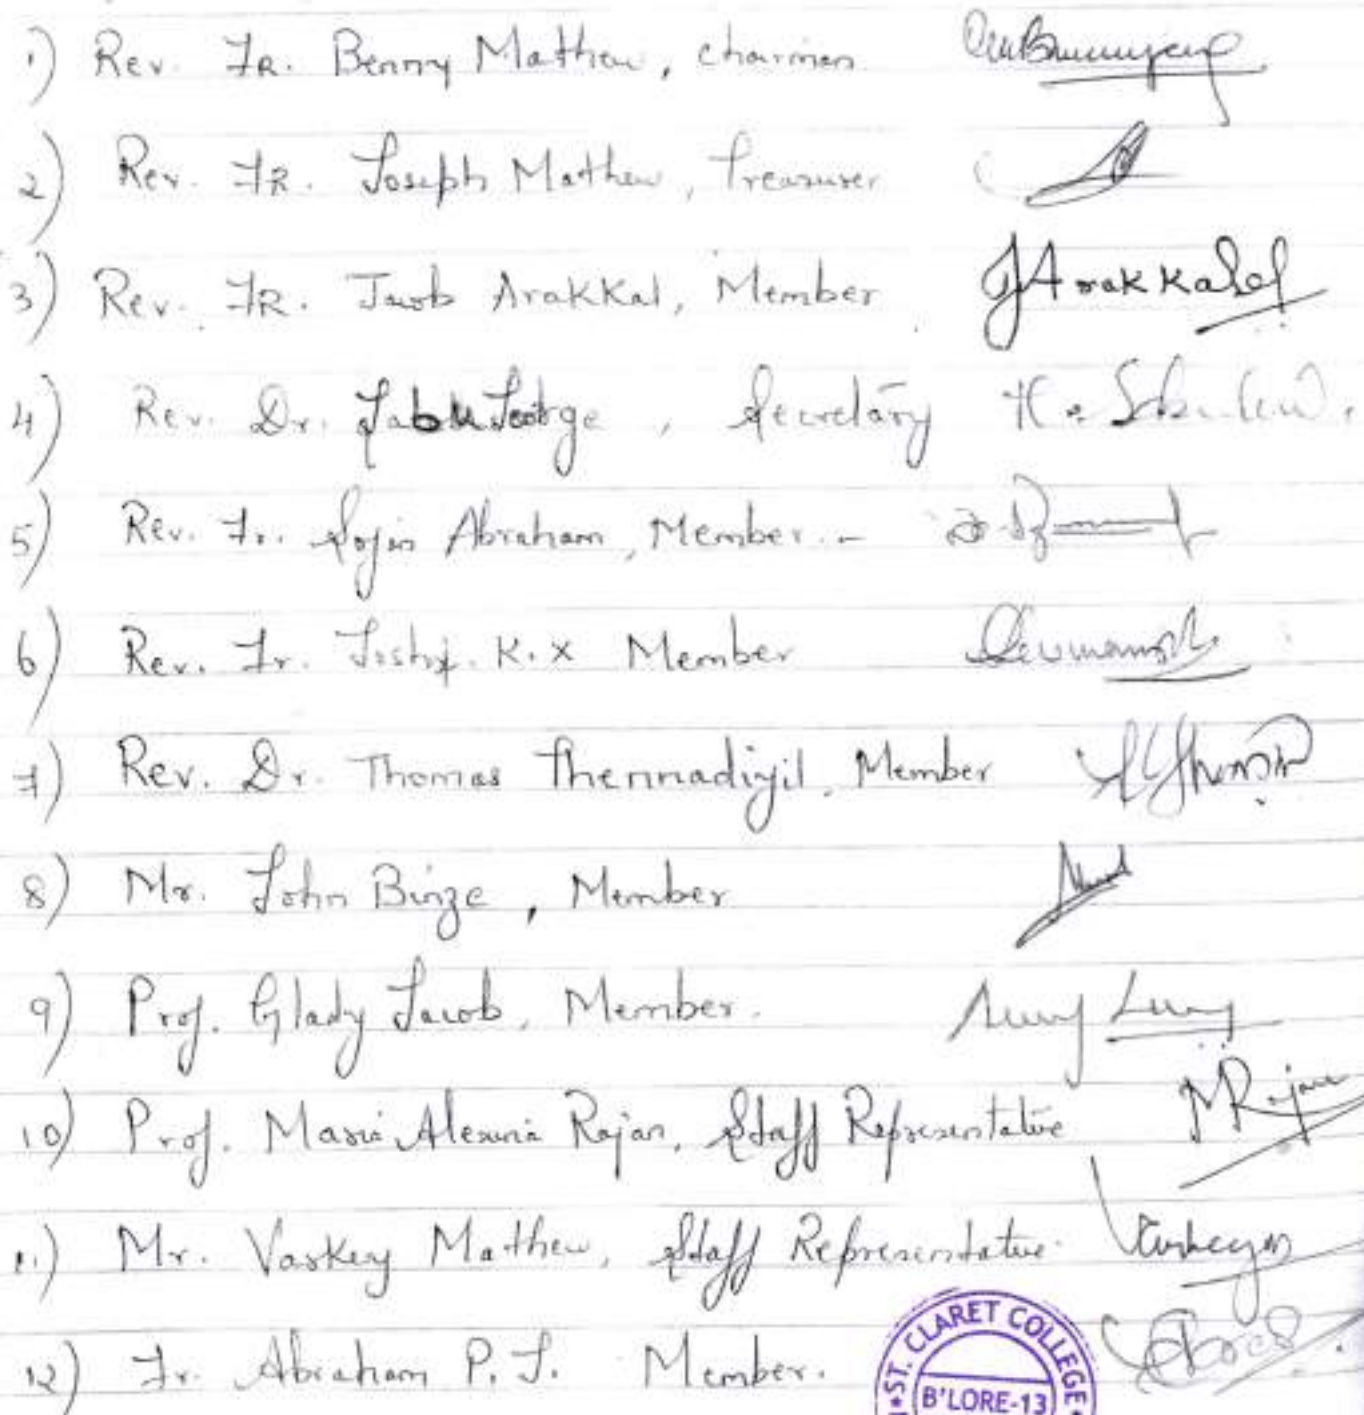 1) Rev. FR. Benny Mathew, chairman
2) Rev. FR. Joseph Mathew, Treasurer
3) Rev. FR. Jacob Arakkal, Member JArakkal
4) Rev. Dr. Sabu George, Secretary
5) Rev. Fr. Sojan Abraham, Member.-
6) Rev. Fr. K.X Member
7) Rev. Dr. Thomas Thennadiyil, Member
8) Mr. John Binze, Member
9) Prof. Glady Jacob, Member.
10) Prof. Maria Rajan, Staff Representative MRajan
11) Mr. Varkey Mathew, Staff Representative
12) Fr. Abraham P.J. Member.
ST. CLARET COLLEGE
B'LORE-13